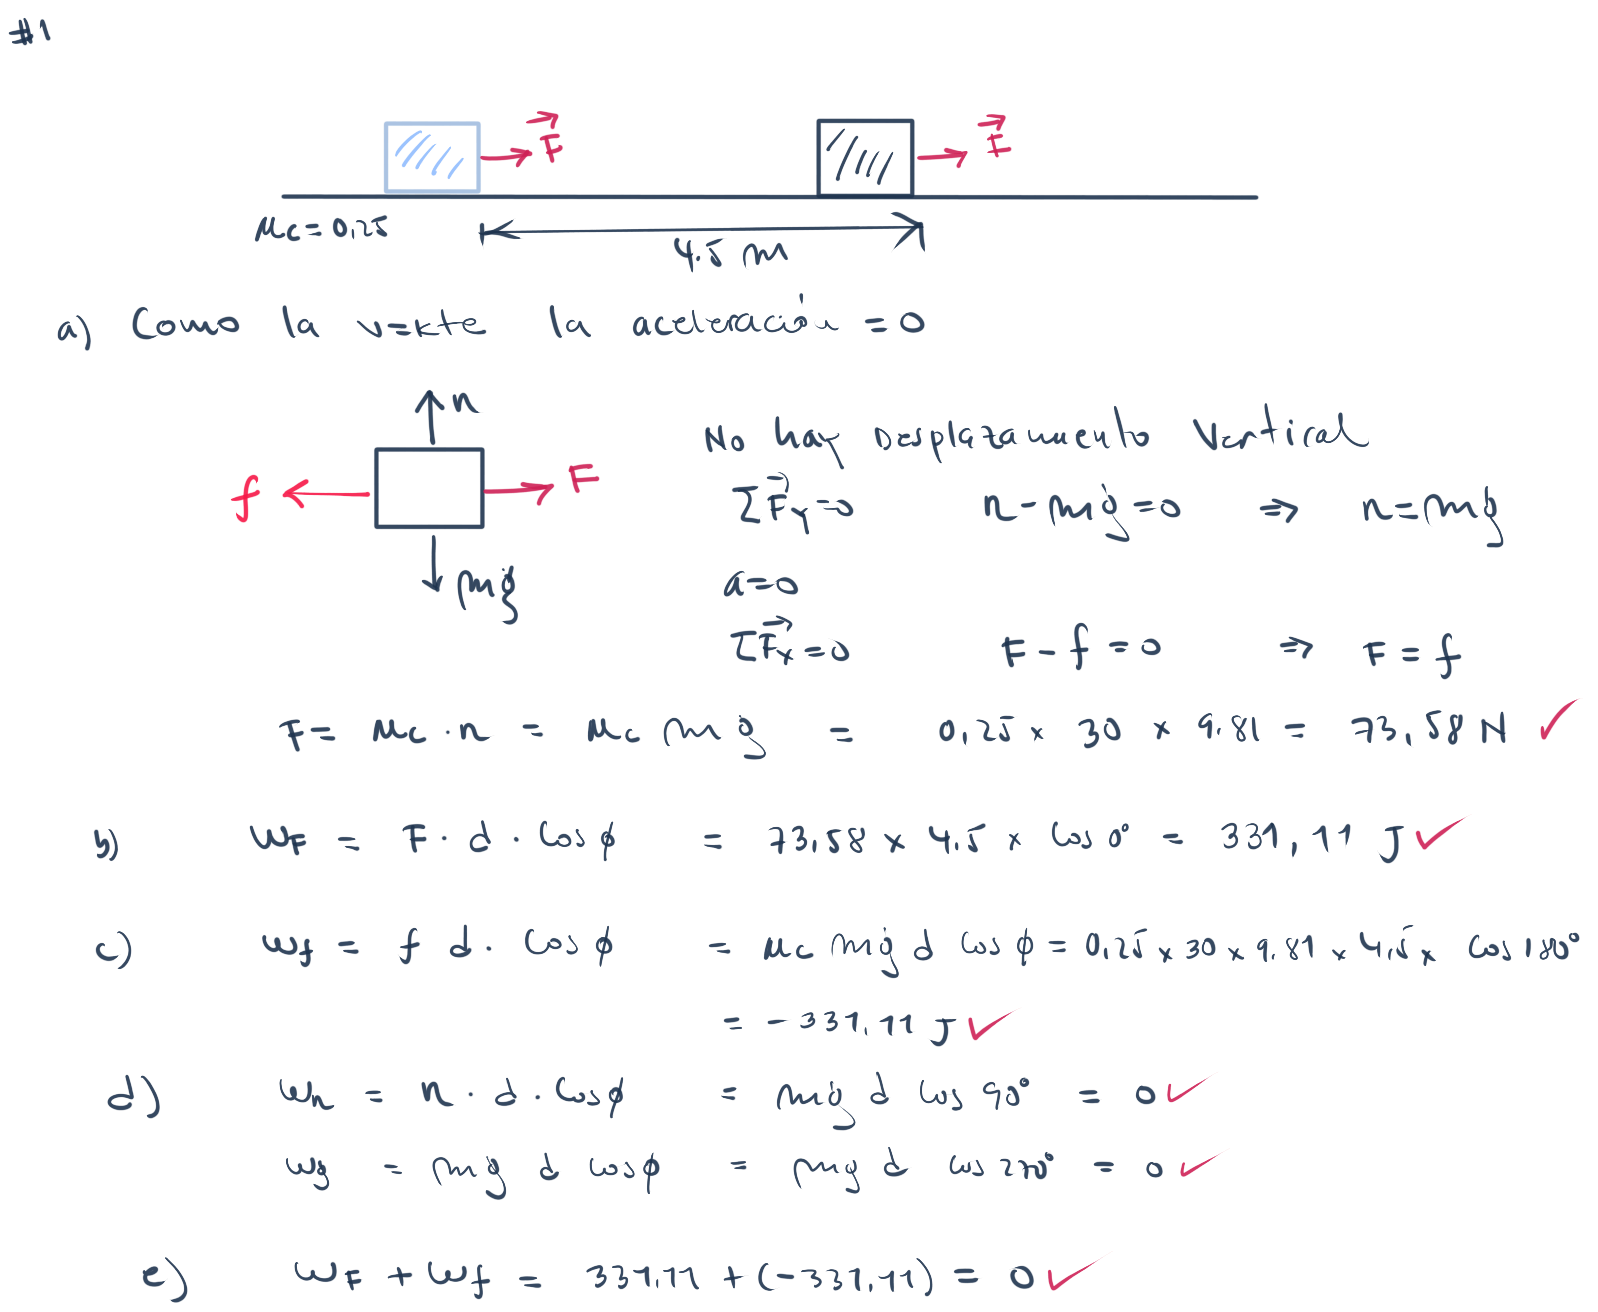 #1
F⃗ F⃗
μc = 0,25
4.5 m
a) Como la v=kte la aceleración = 0
n
f F
mg
No hay Desplazamiento Vertical
ΣF⃗y=0 n-mg=0 ⇒ n=mg
a=0
ΣF⃗x=0 F-f=0 ⇒ F=f
F= μc . n = μc mg = 0,25 x 30 x 9.81 = 73,58 N ✓
b) WF = F . d . Cos ϕ = 73,58 x 4.5 x Cos 0° = 331,11 J ✓
c) Wf = f d . Cos ϕ = μc mg d Cos ϕ = 0,25 x 30 x 9,81 x 4,5 x Cos 180°
= - 331,11 J ✓
d) Wn = n . d . Cos ϕ = mg d Cos 90° = 0 ✓
Wg = mg d cos ϕ = mg d cos 270° = 0 ✓
e) WF + Wf = 331,11 + (-331,11) = 0 ✓